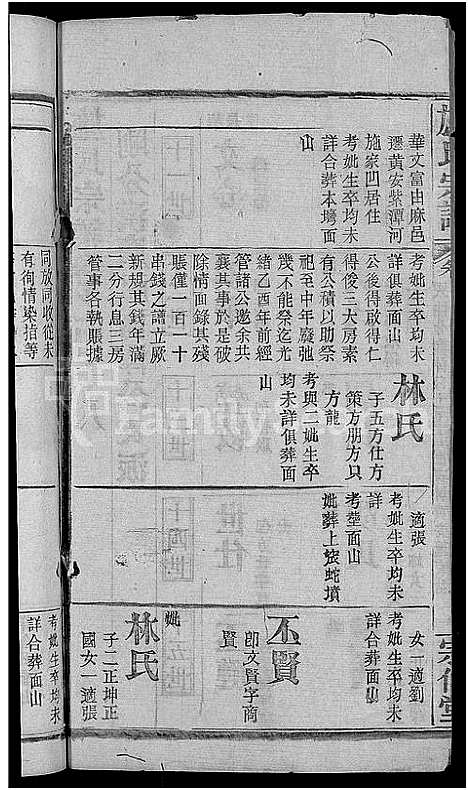 施氏宗譜
華文富由麻邑
遷黃安紫潭河
施家凹居住
考妣生卒均未
詳合葬本塆面
山
考妣生卒均未
詳俱葬面山
公後得啟得仁
得俊三大房素
有公積以助祭
祀至中年廢弛
幾不能祭迄光
緒乙酉年前經
管諸公邀余共
襄其事於是破
除情面錄其殘
賬僅一百一十
串錢之譜立厰
新規其錢年滿
二分行息三房
管事各執賬據
林氏
子五方仕方
策方朋方只
方龍
考與二妣生卒
均未詳俱葬面
山
適張
考妣生卒均未
詳
考塋面山
妣葬上莰蛇墳
女一適劉
考妣生卒均未
詳合葬面山
丕賢
卽文賢字商
賢
妣
林氏
子二正坤正
國女一適張
同放同收從未
有徇情染指等
考妣生卒均未
詳合葬面山
FamilyS